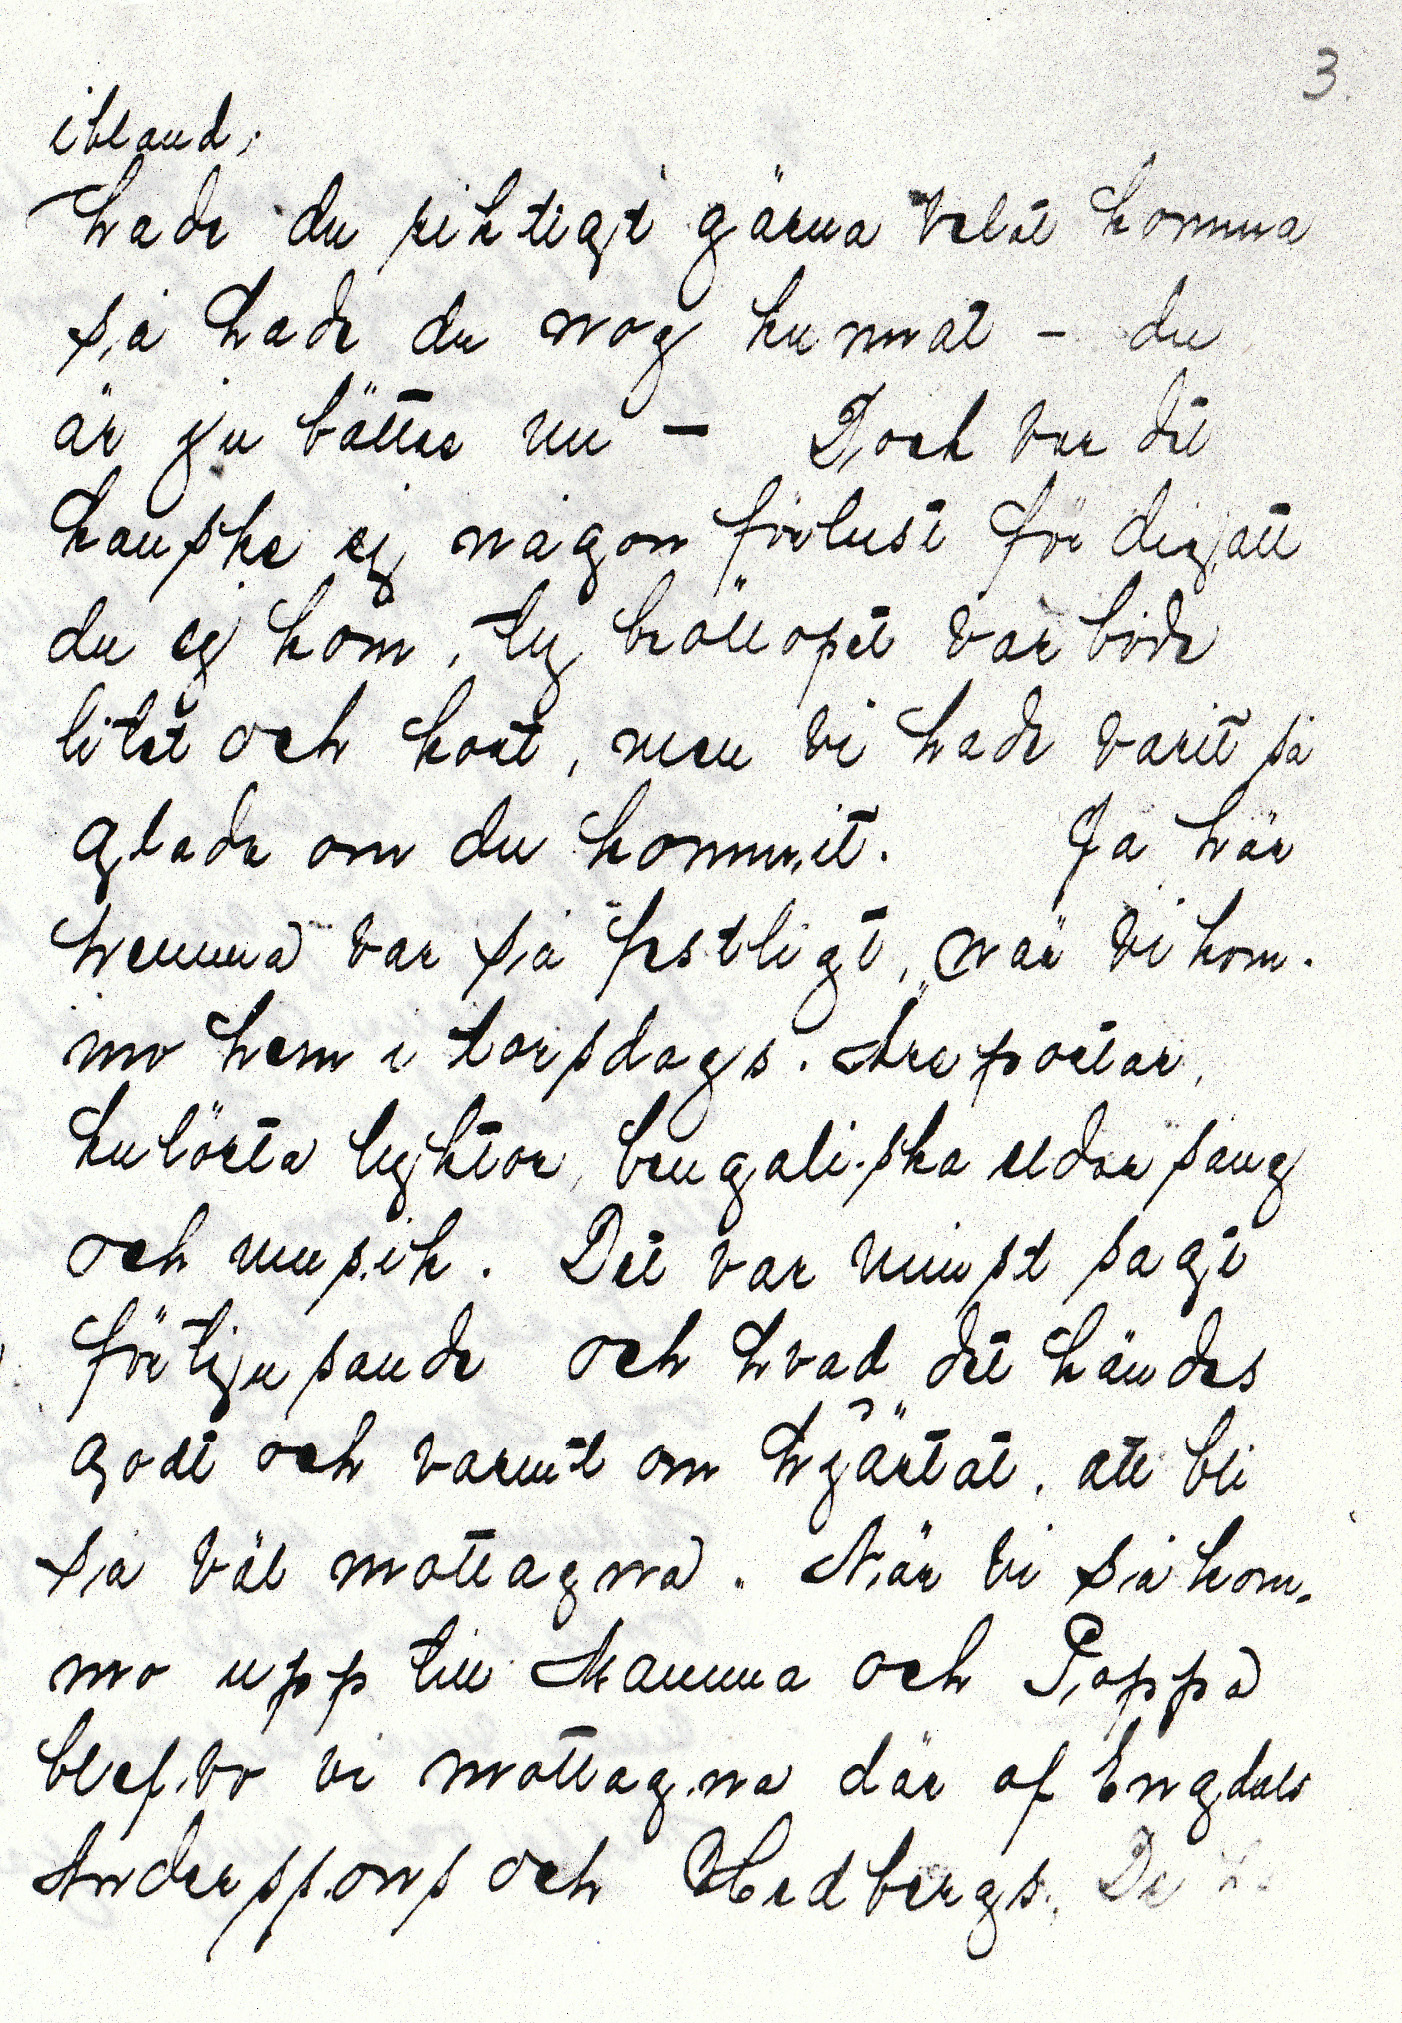 3.
ibland,
hade du riktigt gärna velat komma
så hade du nog kunnat – du
är ju bättre nu – Dock var det
kanske ej någon förlust för dig, att
du ej kom, ty bröllopet var både
litet och kort, men vi hade varit så
glada om du kommit. Ja här
hemma var så festligt, när vi kom-
mo hem i torsdags. Äreportar,
kulörta lyktor, bengaliska eldar sång
och musik. Det var minst sagt
förtjusande och hvad det kändes
godt och varmt om hjärtat, att bli
så väl mottagna. När vi så kom-
mo upp till Mamma och Pappa
blefvo vi mottagna där af Engdals
Anderssons och Hedbergs. De